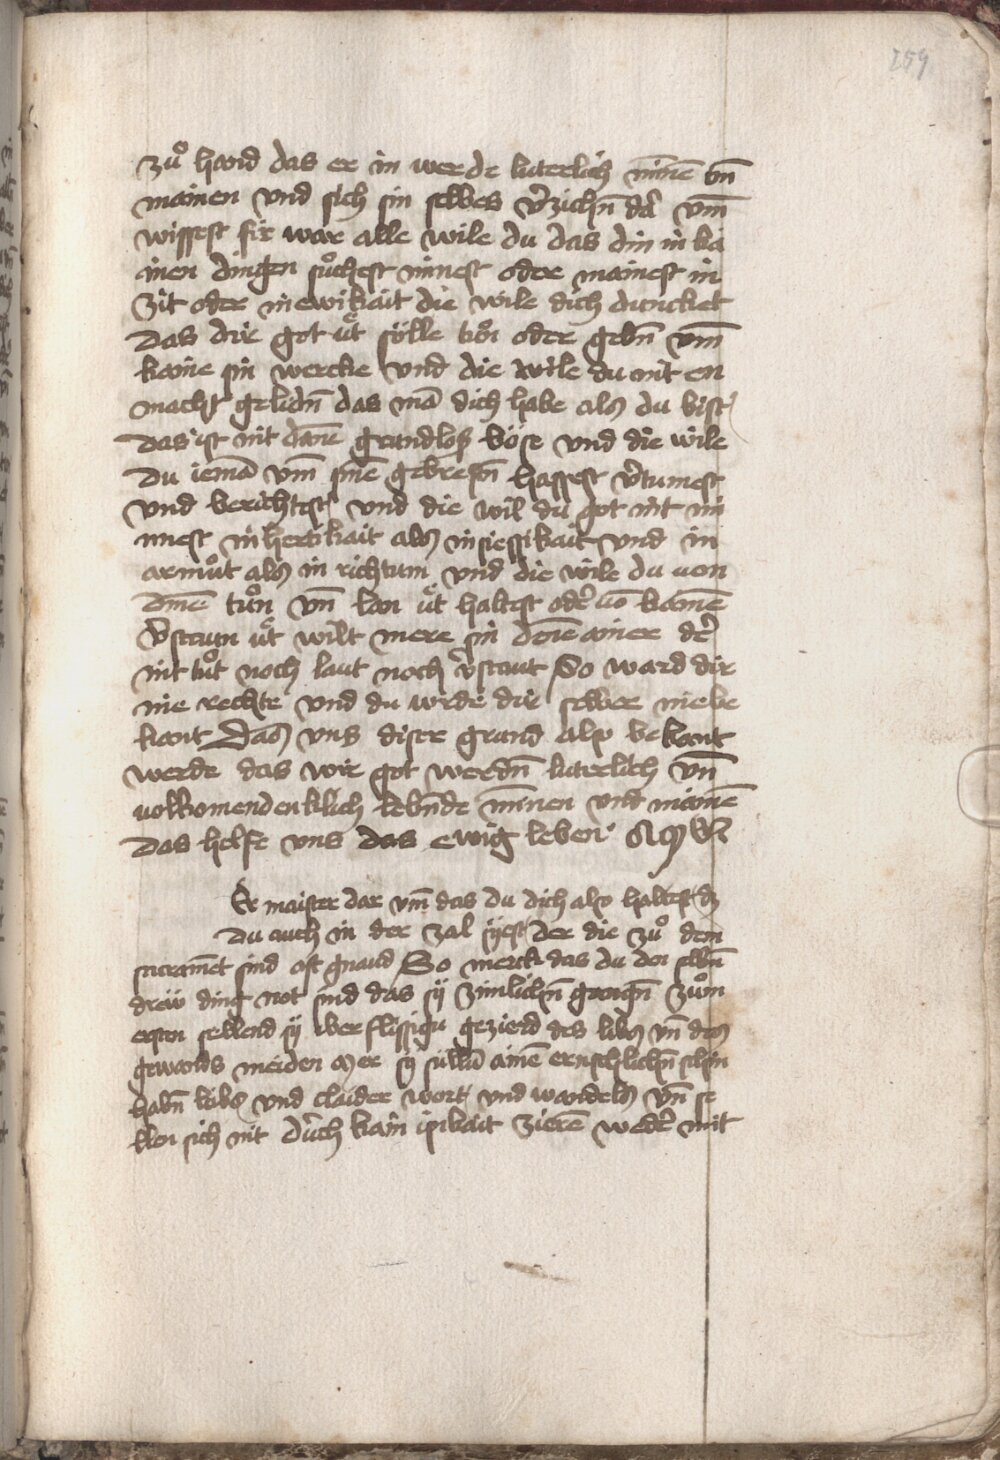 259
zuͦ hand das er in werde luterlich minē vn̄
mainen vnd sich sin selbes v̉zichn̄ dā vm̄
wissest fir war alle wile du das din in ka
inen dingen suͦchest minnest oder mainest in
zit oder in ewikait die wile dich duncket
Das dir got uͤt soͤlle oder gebn̄ vm̄
kaine sin wercke vnd die wile du nit en
macht gelidn̄ das mā dich habe als du bist
Das ist nit dine grundlos boͤse vnd die wile
Du iemā vm̄ sinē gebresn̄ hassest v̉tumest
vnd berichtest vnd die wil du got nit mi
nnest in hertikait als in siessikait vnd in
armuͦt als in richtum vnd die wile du uon
dinē tuͦn vn̄ lon uͤt haltest oder̉ uō kainē
v̉staun uͤt wilt mere sin denē ainer der̉
nit tuͦt noch laut noch v̉staut So ward dir
nie rechte vnd du wirde dir selber nie be
kant Das vns diser grund also bekant
werde das wir got werdn̄ luterlich vn̄
uolkomendenklich lebn̄de minnen vnd mainē
Das helfe vns das ewig leben AMEN
Er maister dar vm̄ das du dich also haltest dz
Du auch in der zal syͤest der die zuͦ dem
sacramēt sind oft gnaud So merck das du den selbn̄
dryͤ ding not sind das syͤ zimlichn̄ gangn̄ zuͦm
ersten sellend syͤ vberflissigu gezierd des libs vn̄ des
gewands meiden Mer syͤ sullū ainē ernschlichn̄ schin
habn̄ libs vnd claider wort vnd wandels vn̄ se
llen sich nit durch kain ipikait zierē weder̉ mit